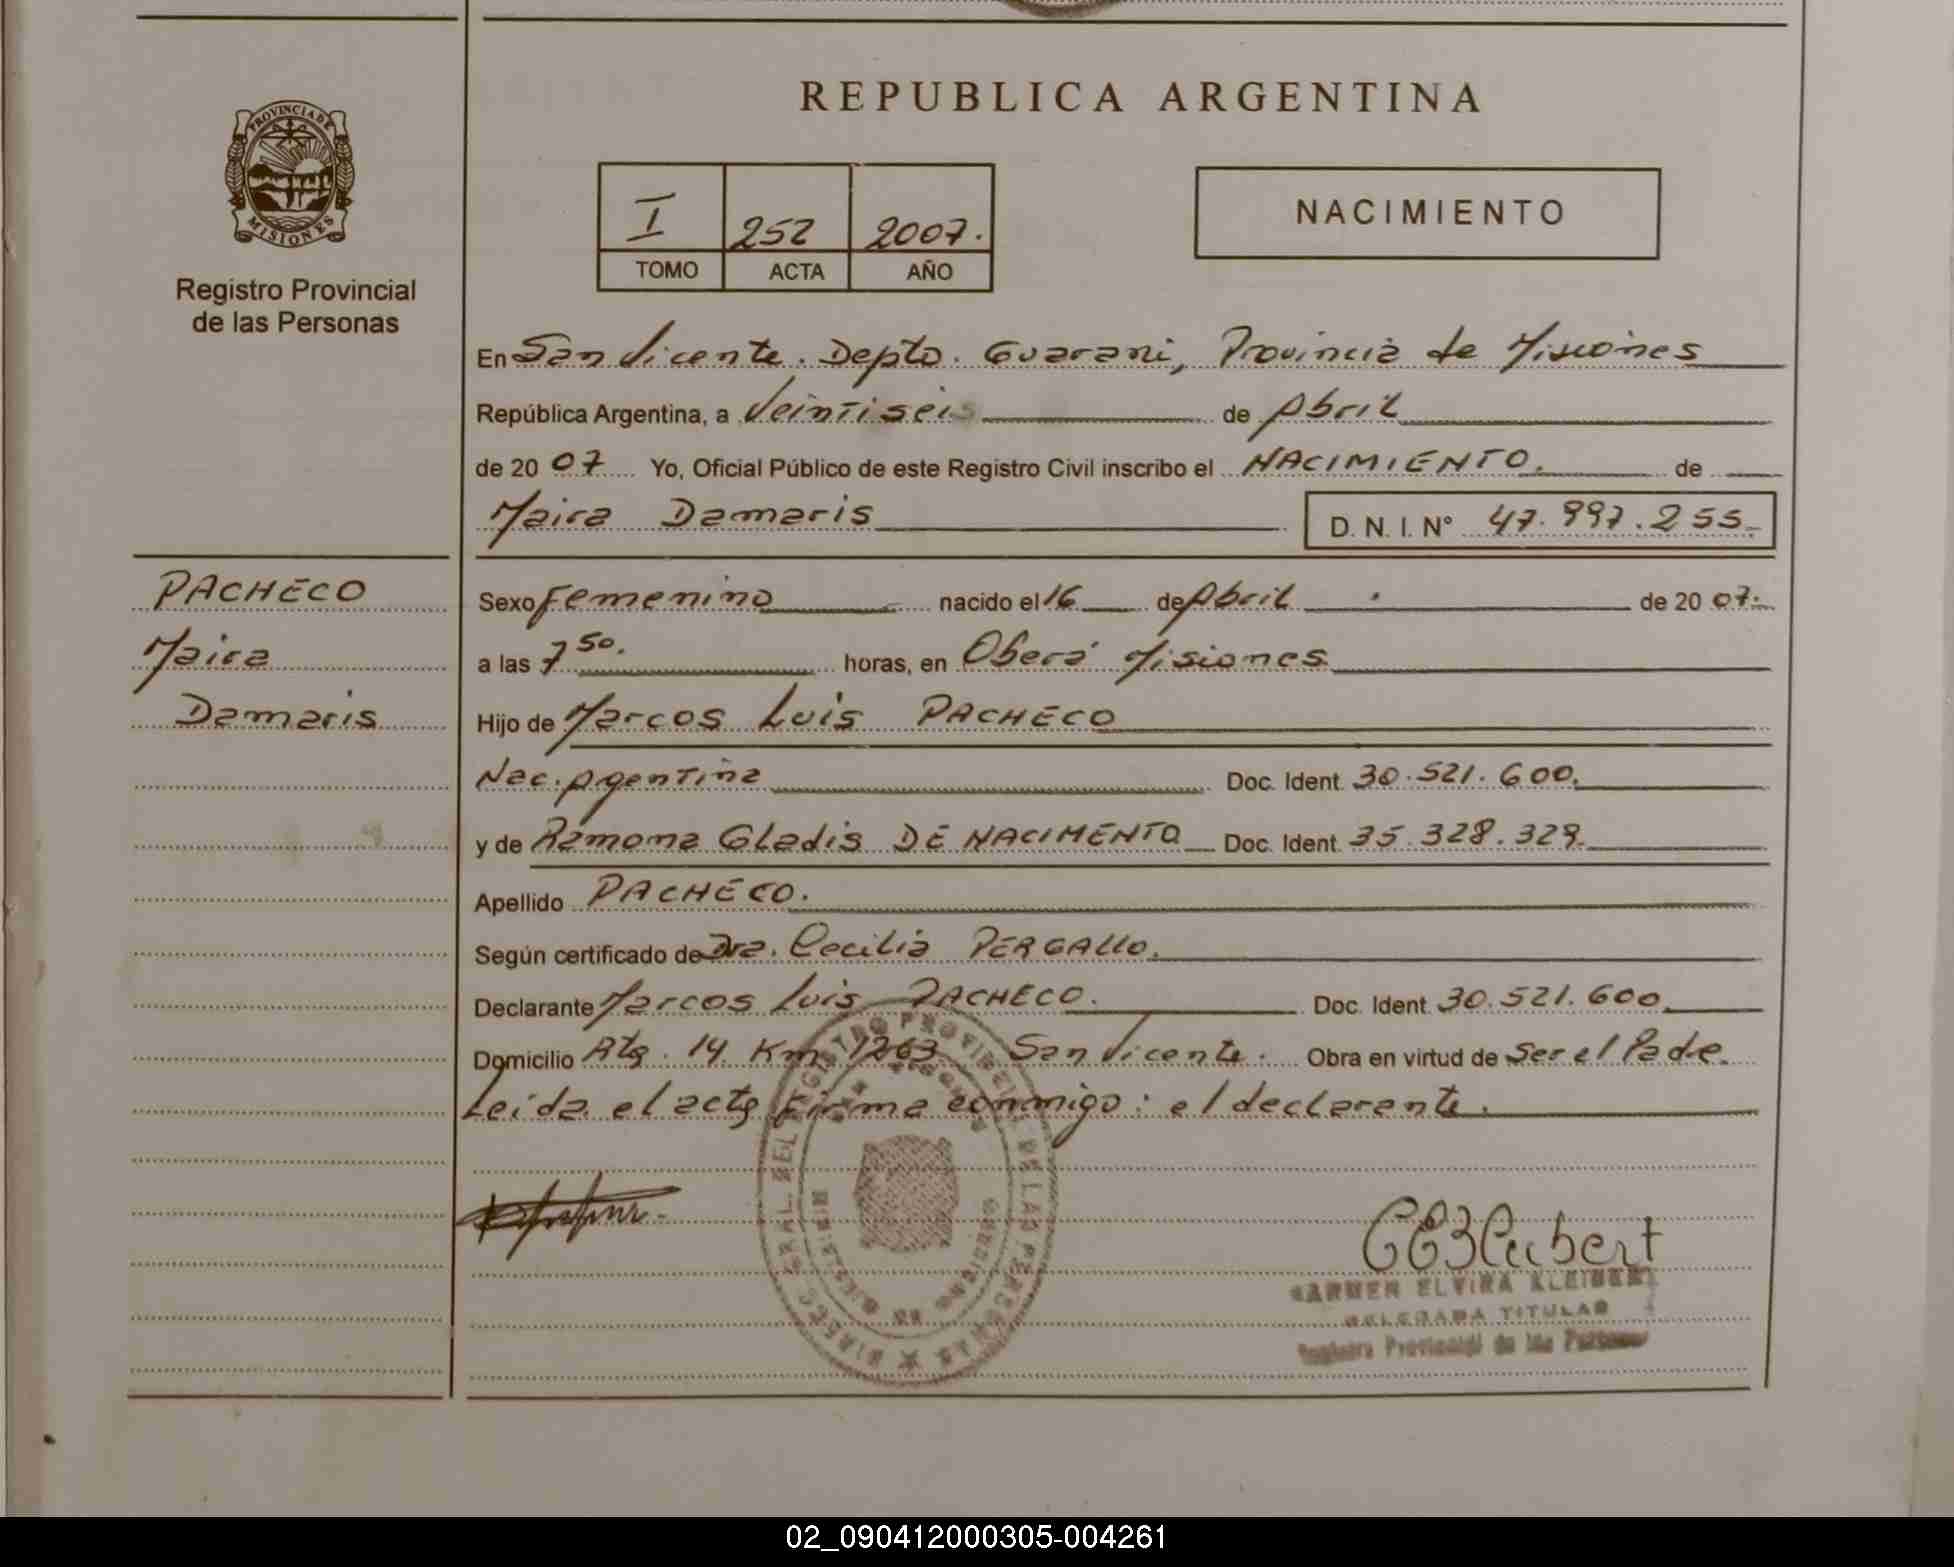 REPUBLICA ARGENTINA
PROVINCIA DE
MISIONES
Registro Provincial
de las Personas
I 252 2007.
TOMO ACTA AÑO
NACIMIENTO
En San Vicente. Depto. Guarani, Provincia de Misiones
República Argentina, a Veintiseis de Abril
de 20 07 Yo, Oficial Público de este Registro Civil inscribo el NACIMIENTO. de
Maira Damaris D. N. I. N° 47.997.255
PACHECO
Maira
Damaris
Sexo Femenino nacido el 16 de Abril de 20 07.
a las 7 50. horas, en Oberá Misiones
Hijo de Marcos Luis PACHECO
Nac. Argentina Doc. Ident. 30.521.600.
y de Ramona Gladis DE NACIMENTO Doc. Ident. 35.328.329.
Apellido PACHECO.
Según certificado de Dra. Cecilia PERGALLO.
Declarante Marcos Luis PACHECO. Doc. Ident. 30.521.600
Domicilio Rta. 14 Km 1263 San Vicente. Obra en virtud de Ser el Padre.
Leida el acta firma conmigo: el declarante.
CARMEN ELVIRA KLEIBERT
DELEGADA TITULAR
Registro Provincial de las Personas
02_090412000305-004261